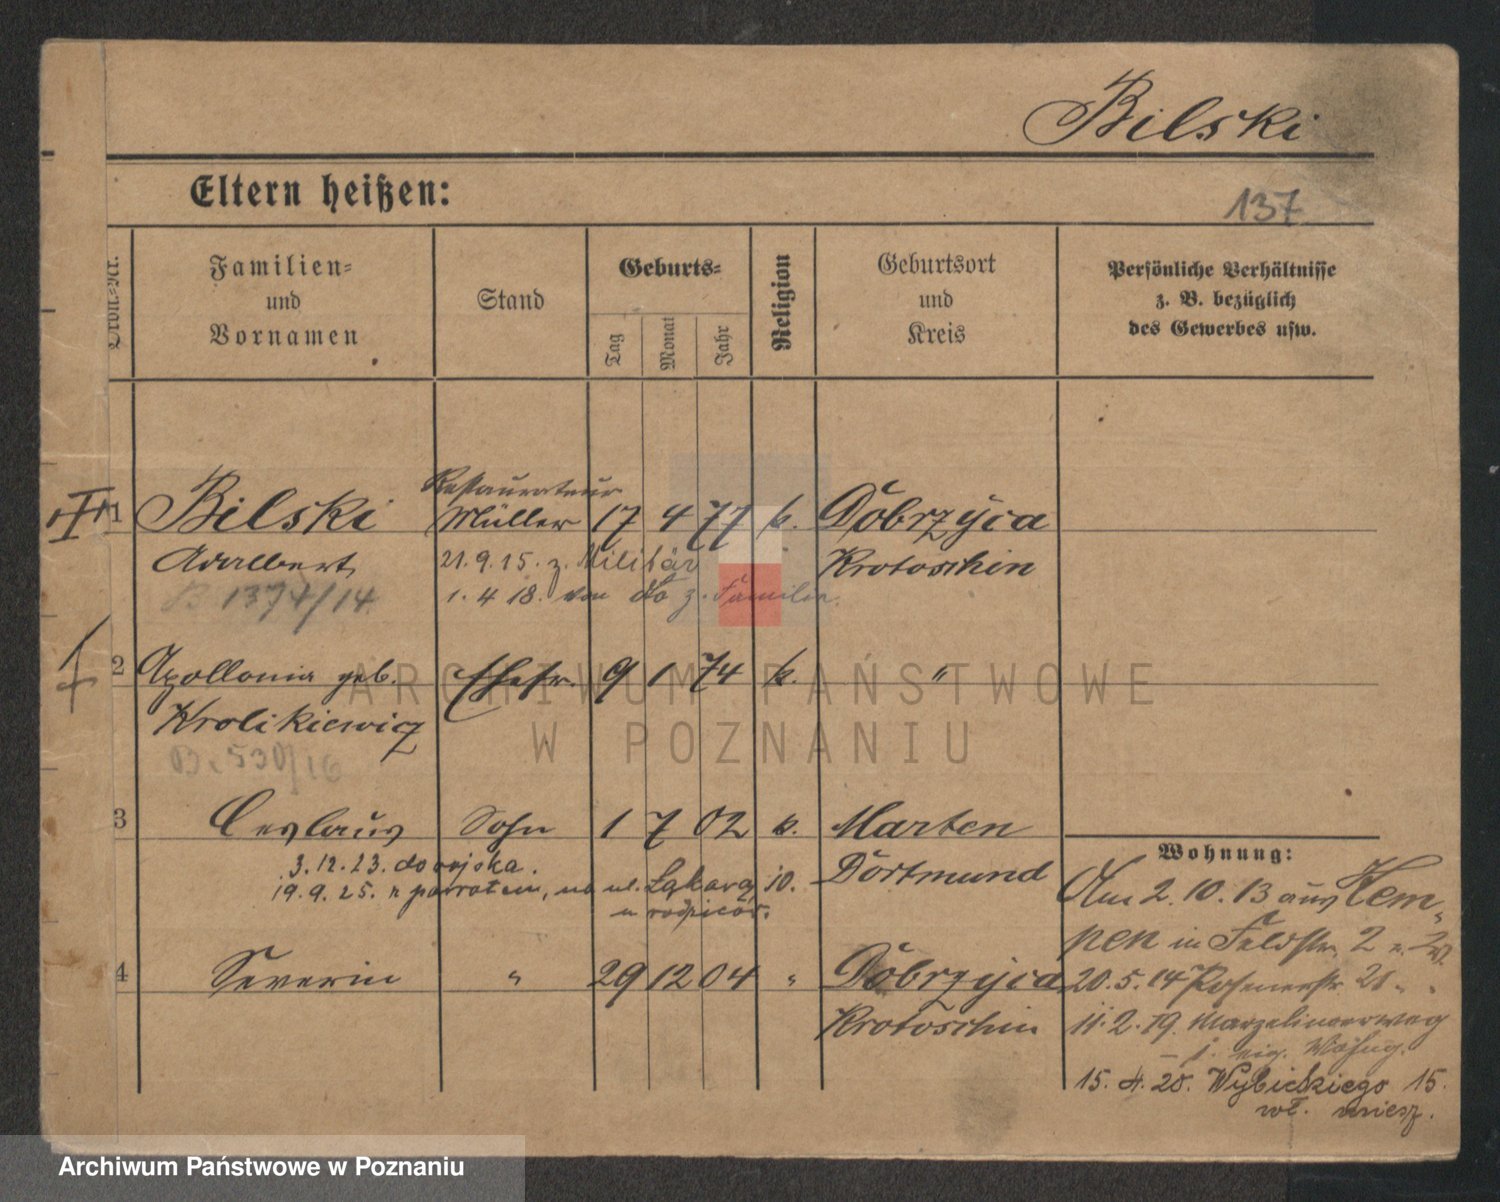 Bilski
Eltern heißen:
137
Ordn.-Nr.
Familien-
und
Vornamen
Stand
Geburts-
Tag
Monat
Jahr
Religion
Geburtsort
und
Kreis
Persönliche Verhältnisse
z. B. bezüglich
des Gewerbes usw.
Restaurateur
1 Bilski Müller 17 4 77 k. Dobrzyca
Adalbert 21. 9. 15. z. Militär Krotoschin
B 1374/14 1. 4 18. von do z. Familie.
2 Apollonia geb. Ehefr. 9 1 74 k. "
Krolikiewicz
B. 530/16
3 Ceslaus Sohn 1 7 02 k. Marten
3. 12. 23. do wojska. Dortmund
19. 9. 25. z powrotem, na ul. Łąkową 10.
u rodziców.
4 Severin " 29 12 04 " Dobrzyca
Krotoschin
Wohnung:
Am 2. 10. 13 aus Kem-
pen in Feldstr. 2
20. 5. 14 Posenerstr. 21 " "
11. 2. 19. Marzelinerweg
j. eig. Wohng.
15. 4. 20. Wybickiego 15.
wł. miesz.
ARCHIWUM PAŃSTWOWE
W POZNANIU
Archiwum Państwowe w Poznaniu